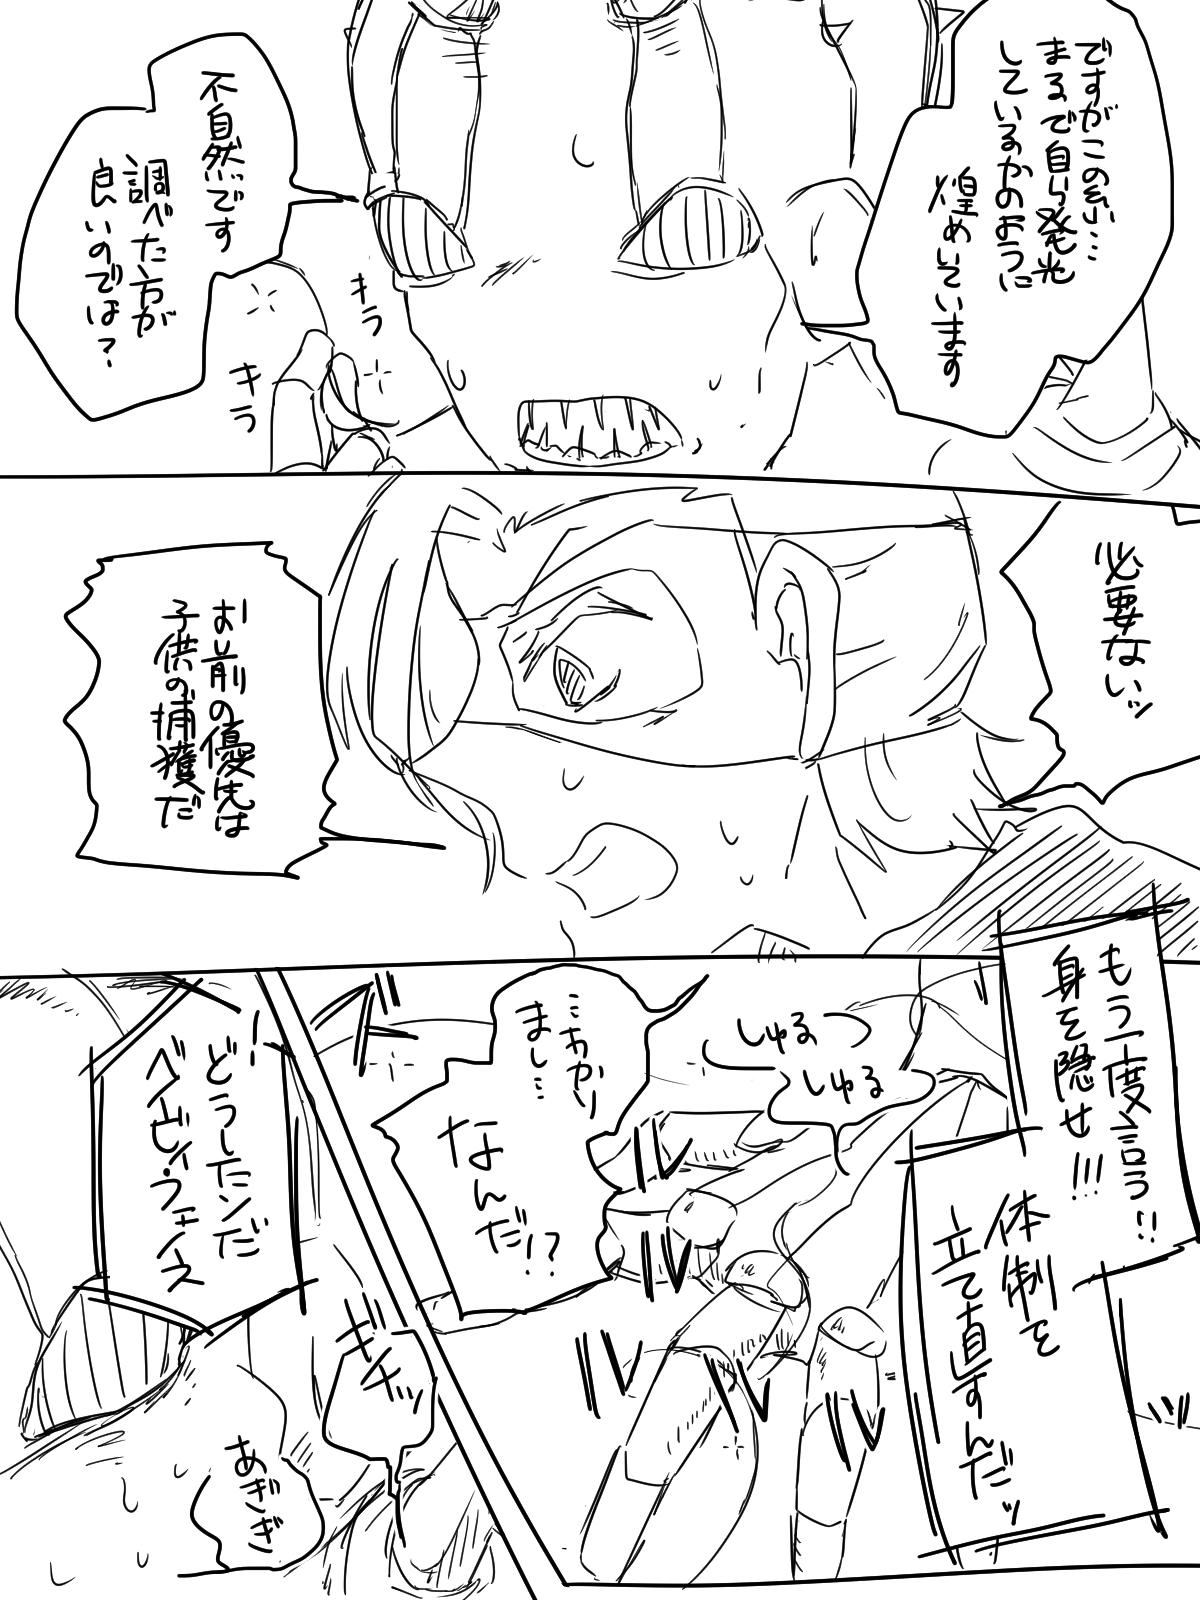 ですがこの糸…
まるで自ら発光
しているかのように
煌めいています
不自然です
調べた方が
良いのでは?
キラ
キラ
必要ないッ
お前の優先は
子供の捕獲だ
もう一度言う!!
身を隠せ!!!
体制を
立て直すんだッ
しゅるっ
しゅる
…わかり
まし…
なんだ!?
どうしたンだ
ベイビィ・フェイス
ギチッ
あぎぎ